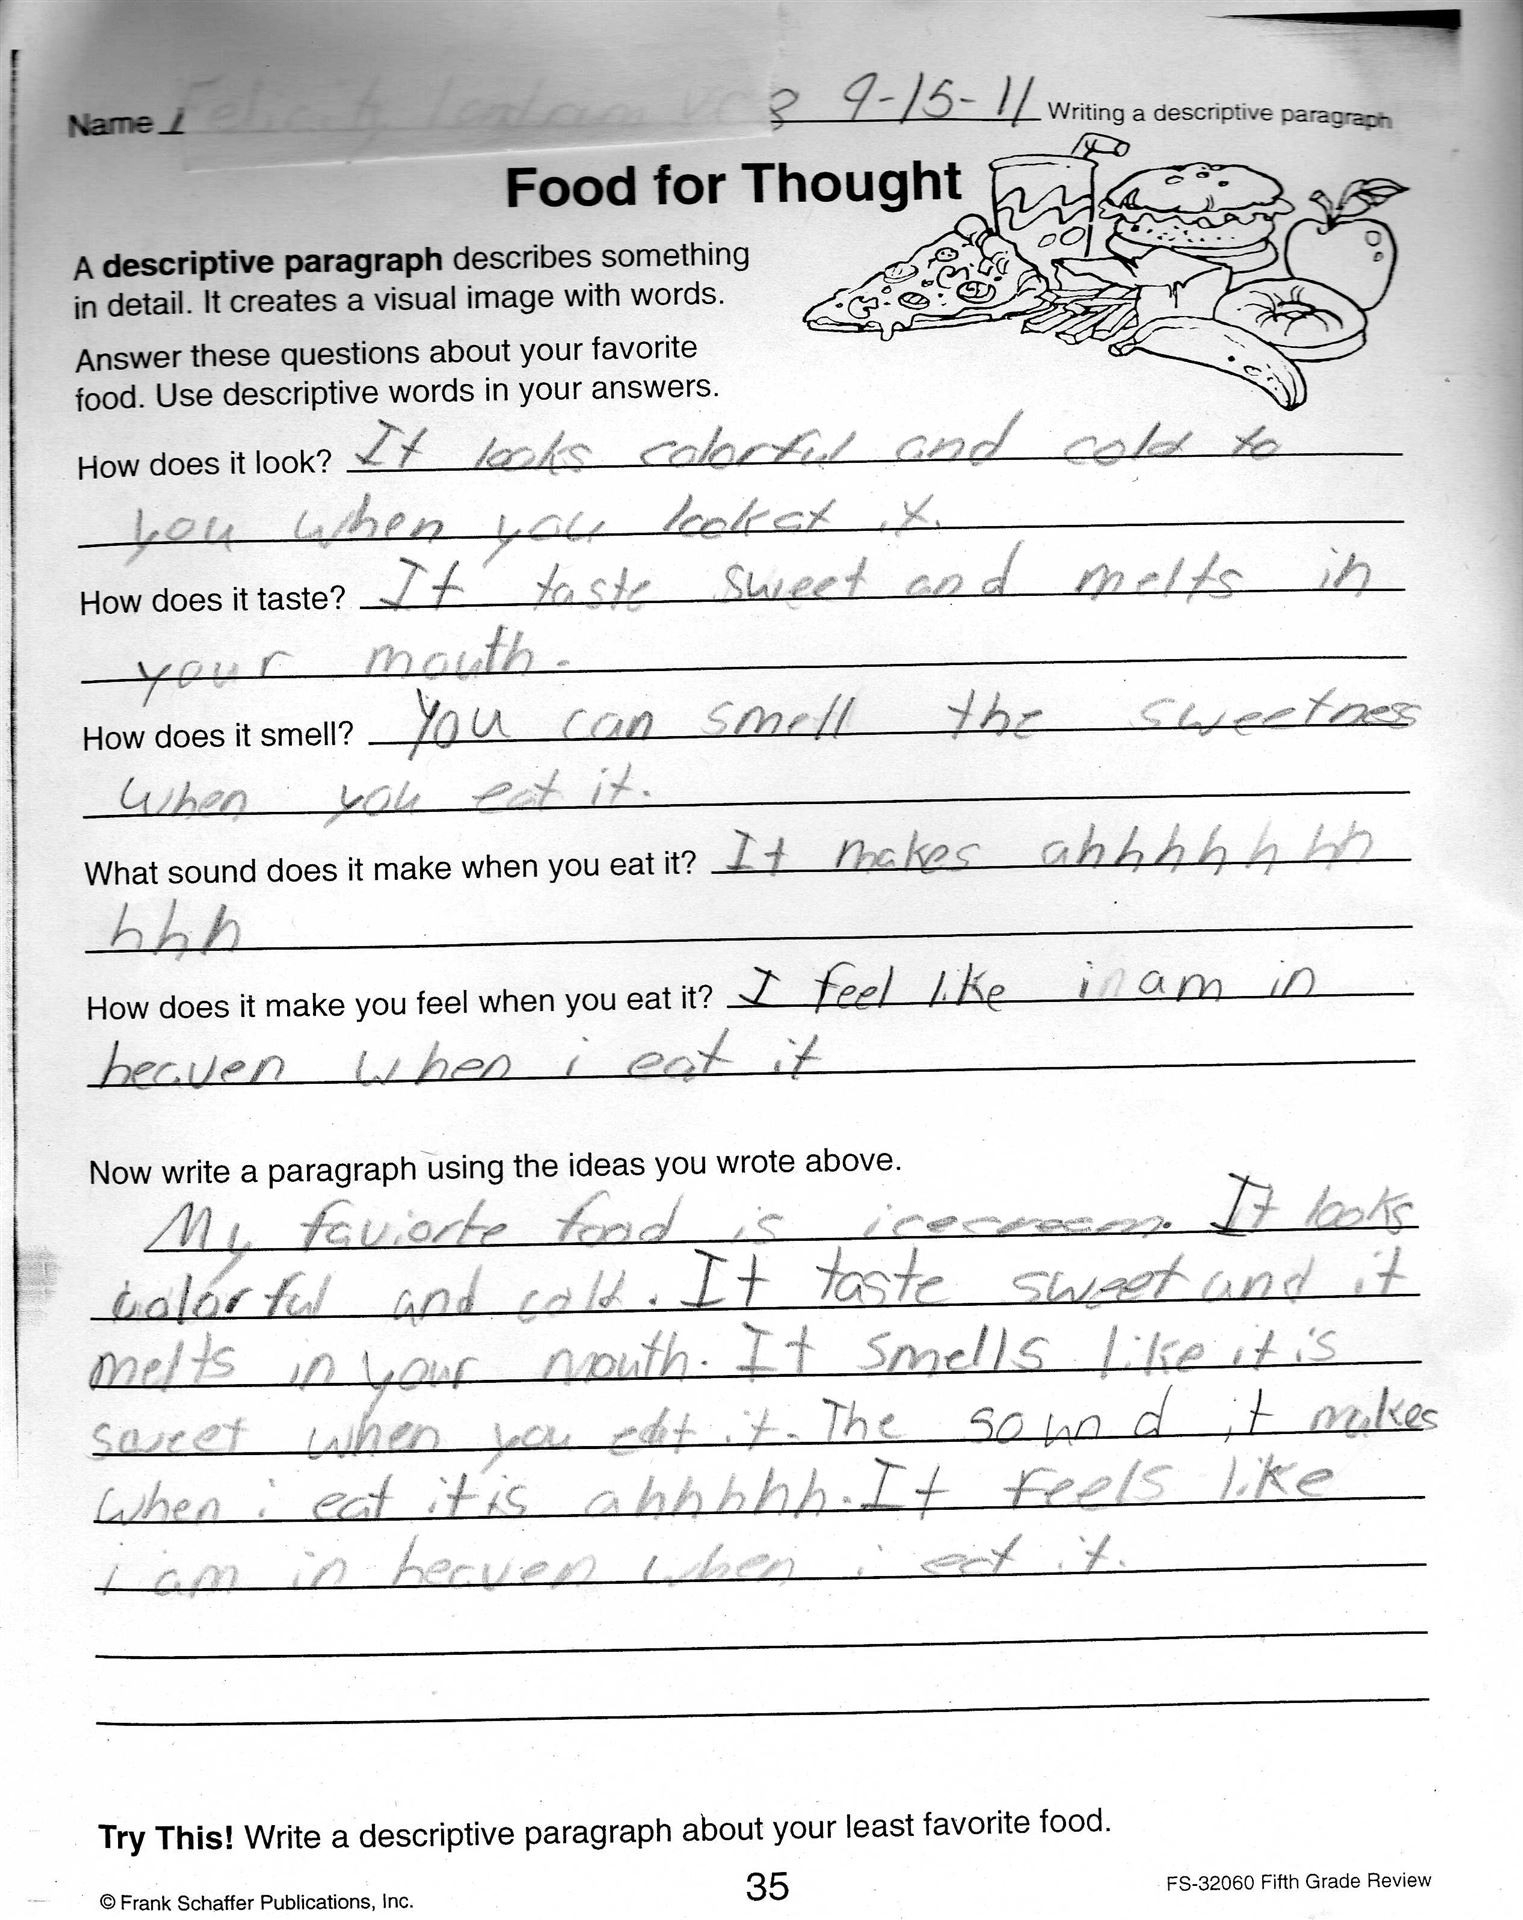 Name 9-15-11 Writing a descriptive paragraph
Food for Thought
A descriptive paragraph describes something
in detail. It creates a visual image with words.
Answer these questions about your favorite
food. Use descriptive words in your answers.
How does it look? It looks colorful and cold to
you when you look at it.
How does it taste? It taste sweet and melts in
your mouth.
How does it smell? You can smell the sweetness
when you eat it.
What sound does it make when you eat it? It makes ahhhhhhh
hhh
How does it make you feel when you eat it? I feel like i am in
heaven when i eat it
Now write a paragraph using the ideas you wrote above.
My faviorte food is icecream. It looks
colorful and cold. It taste sweet and it
melts in your mouth. It smells like it is
sweet when you eat it. The sound it makes
when i eat it is ahhhhhh. It feels like
i am in heaven when i eat it.
Try This! Write a descriptive paragraph about your least favorite food.
© Frank Schaffer Publications, Inc. 35 FS-32060 Fifth Grade Review